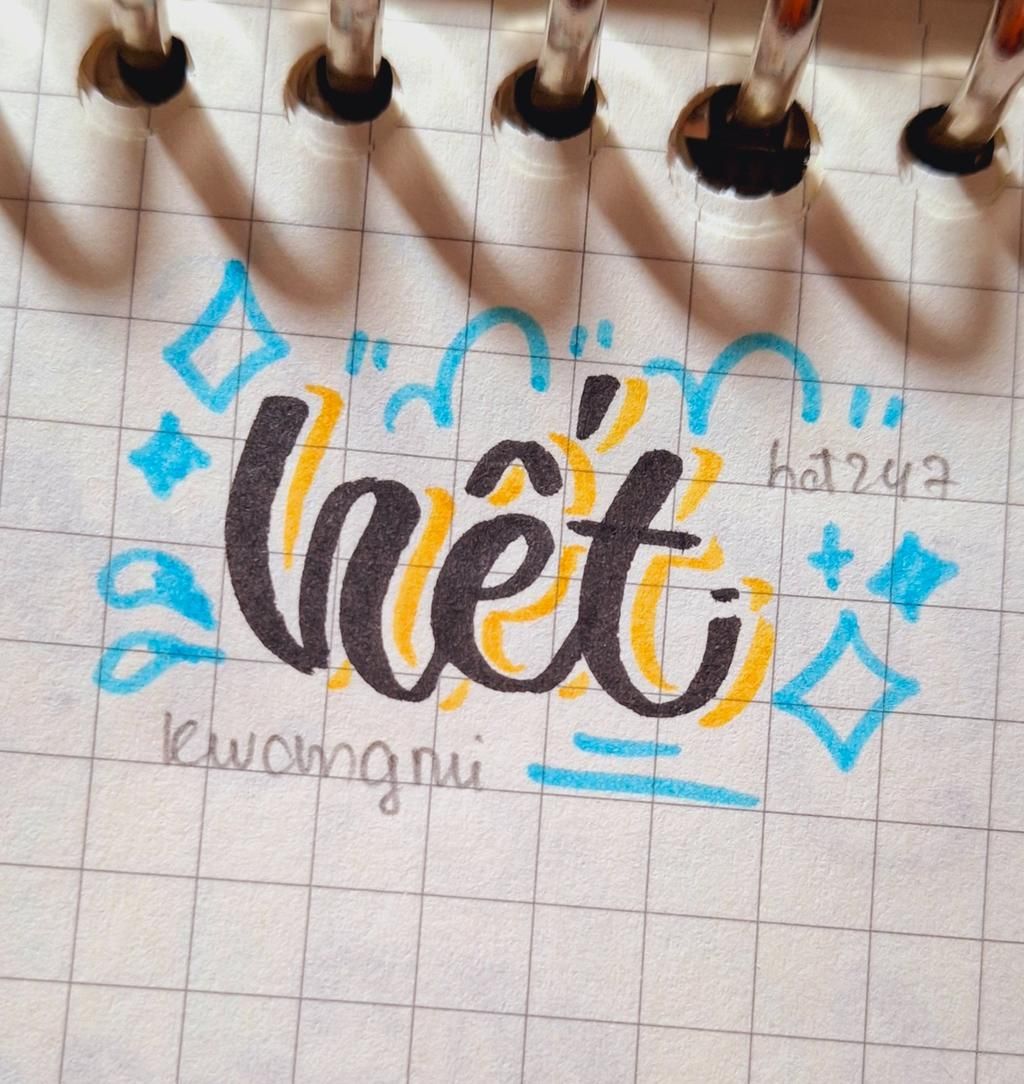 hết
het247
kwangnui